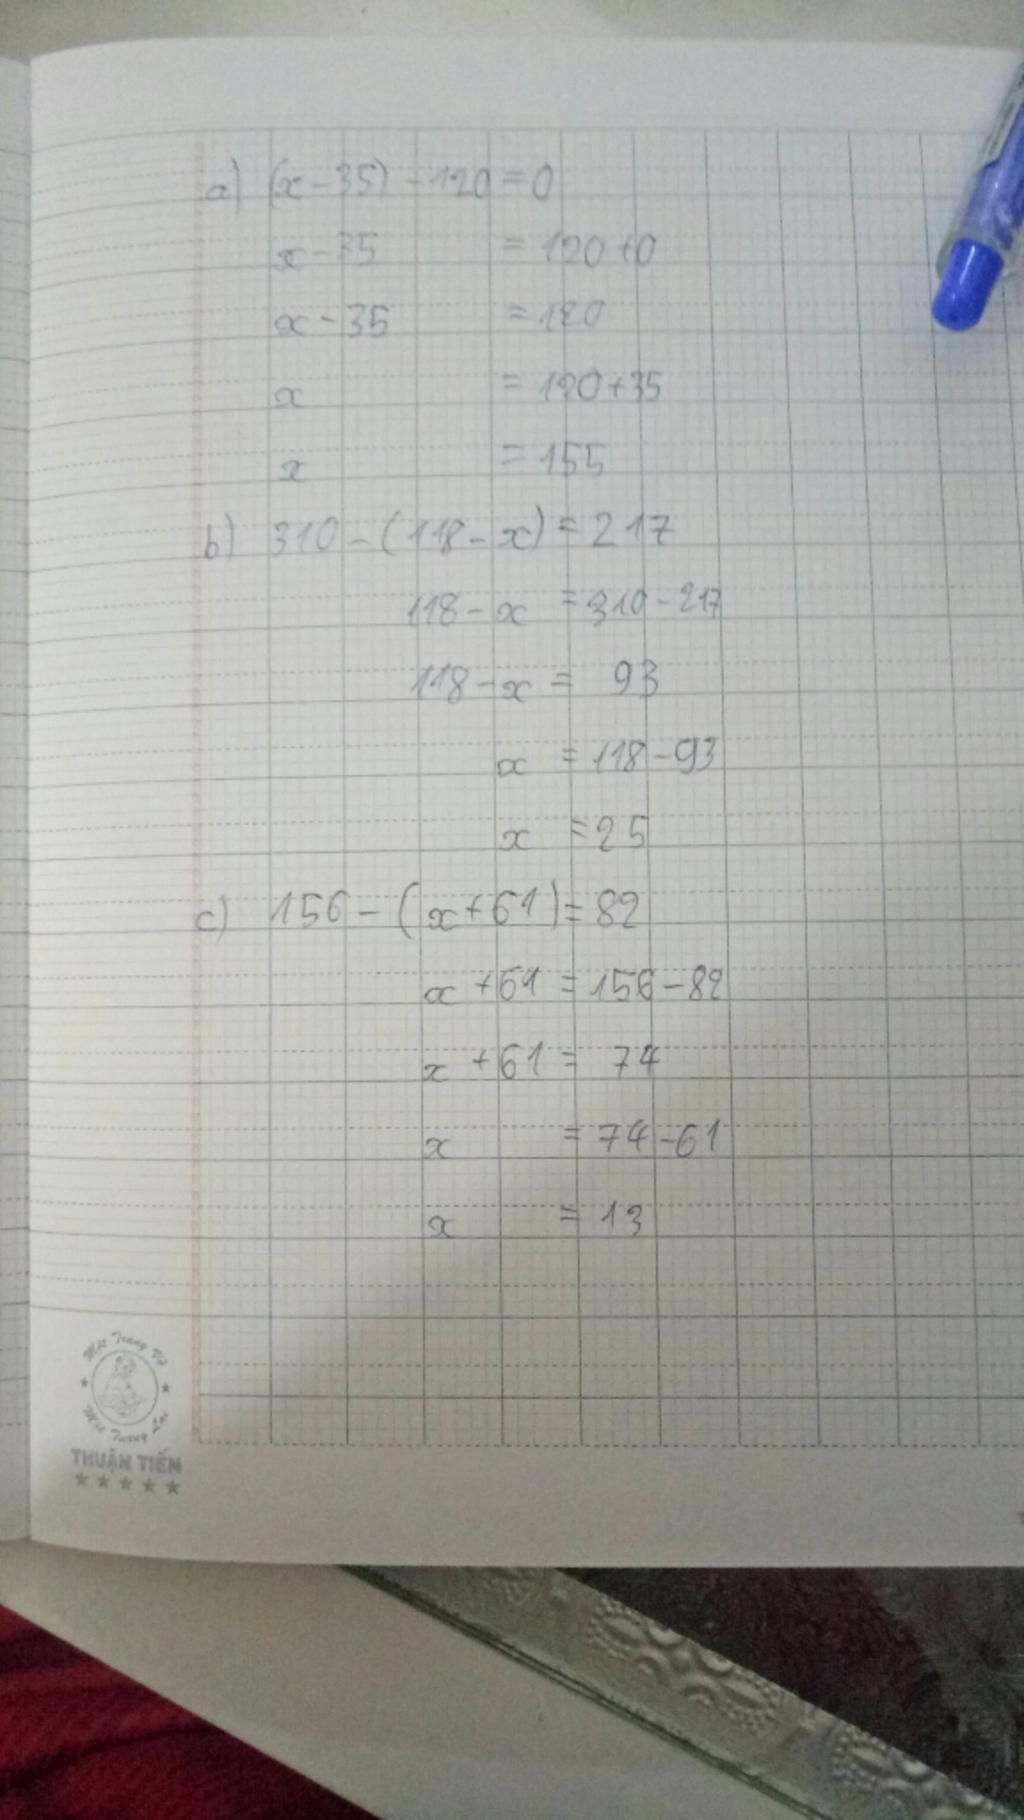 a) (x-35) -120 = 0
x-35 = 120+0
x-35 = 120
x = 120+35
x = 155
b) 310 - (118-x) = 217
118-x = 310-217
118-x = 93
x = 118-93
x = 25
c) 156 - (x+61) = 82
x+61 = 156-82
x+61 = 74
x = 74-61
x = 13
Một Trang Vở
Một Tương Lai
THUẬN TIẾN